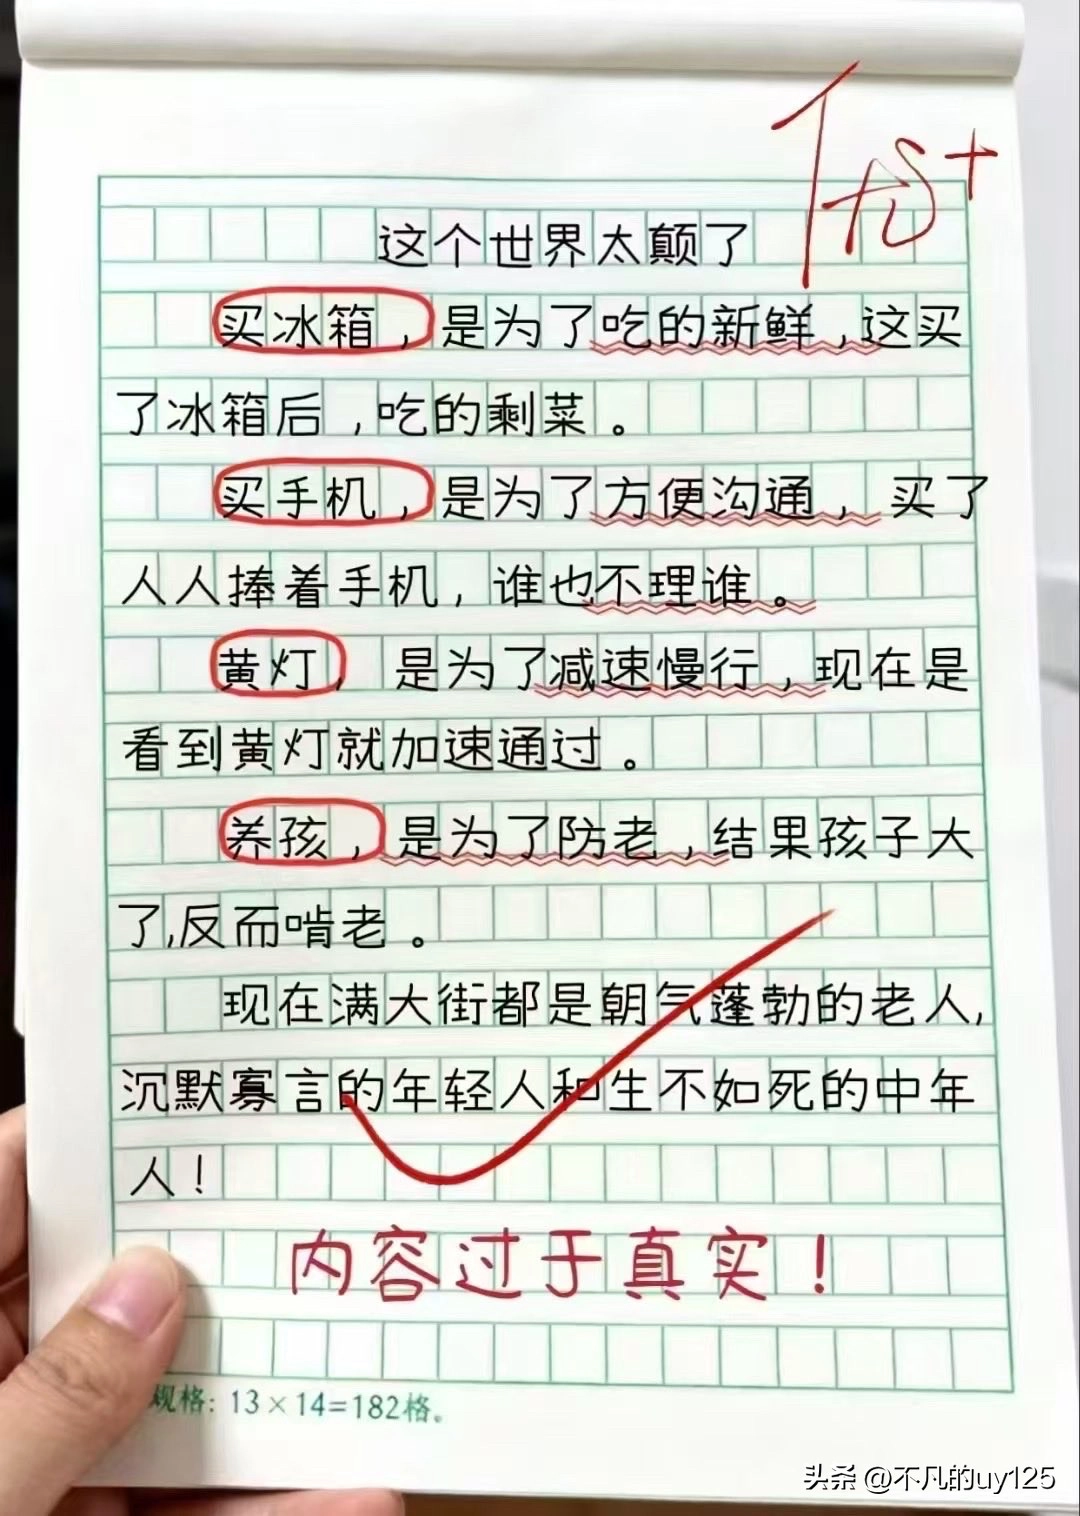 优+
这个世界太颠了
买冰箱，是为了吃的新鲜，这买
了冰箱后，吃的剩菜。
买手机，是为了方便沟通，买了
人人捧着手机，谁也不理谁。
黄灯，是为了减速慢行，现在是
看到黄灯就加速通过。
养孩，是为了防老，结果孩子大
了，反而啃老。
现在满大街都是朝气蓬勃的老人，
沉默寡言的年轻人和生不如死的中年
人！
内容过于真实！
规格：13×14=182格。
头条 @不凡的uy125